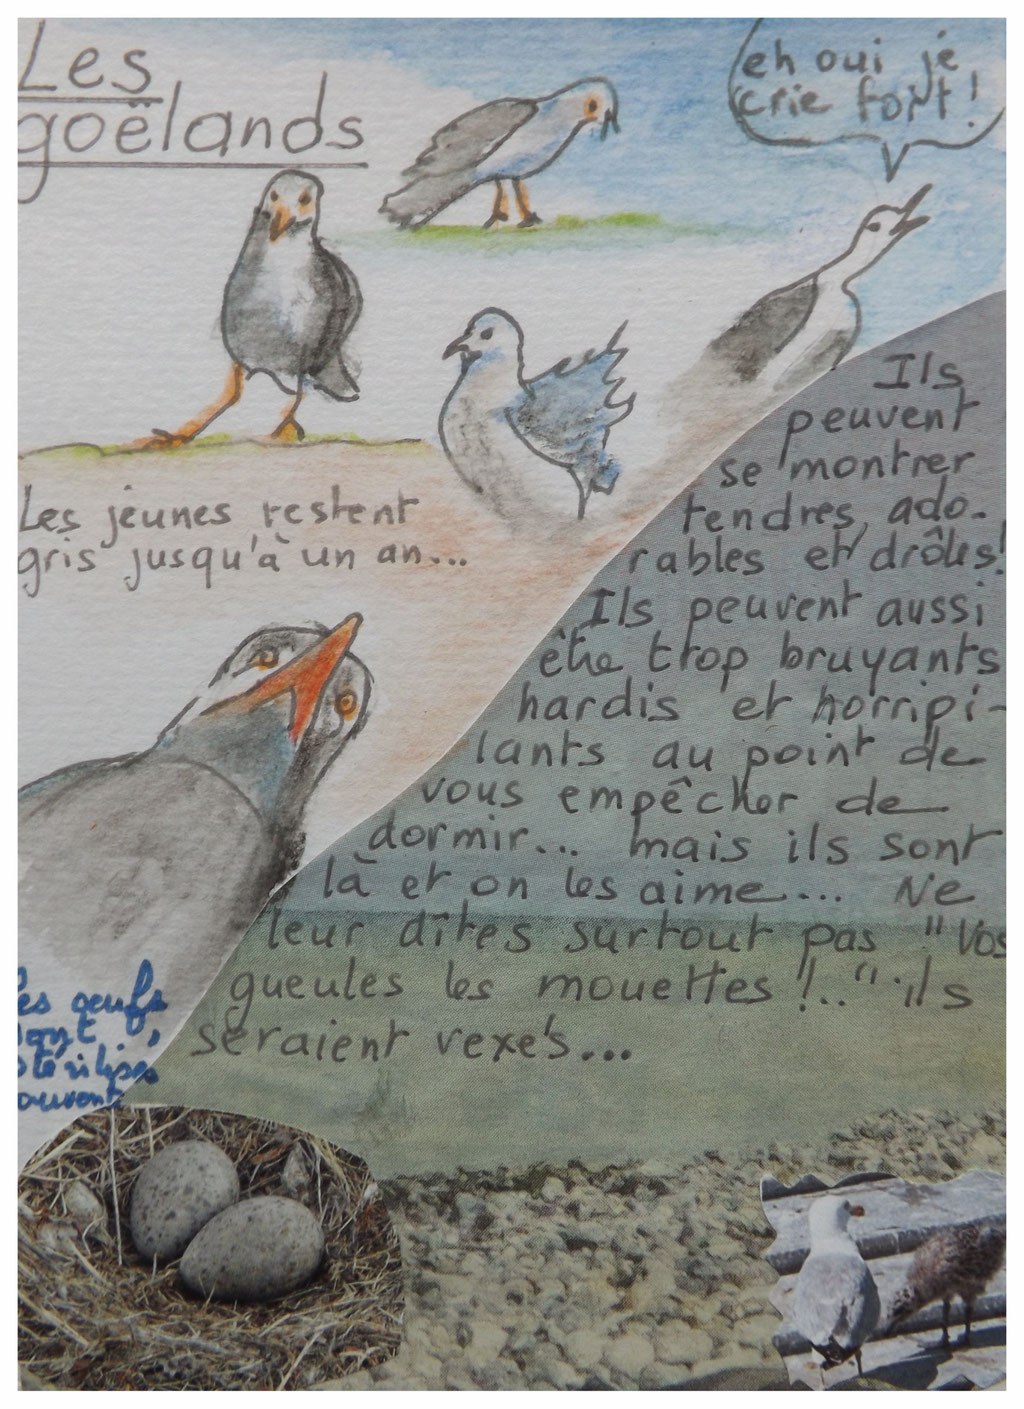 Les
goëlands
eh oui je
crie fort!
Les jeunes restent
gris jusqu'à un an...
Ils
peuvent
se montrer
tendres, ado-
rables et drôles!
Ils peuvent aussi
être trop bruyants
hardis et horripi-
lants au point de
vous empêcher de
dormir... mais ils sont
là et on les aime.... Ne
leur dîtes surtout pas "Vos
gueules les mouettes!.." ils
seraient vexés...
les oeufs
sont
stérilisés
souvent